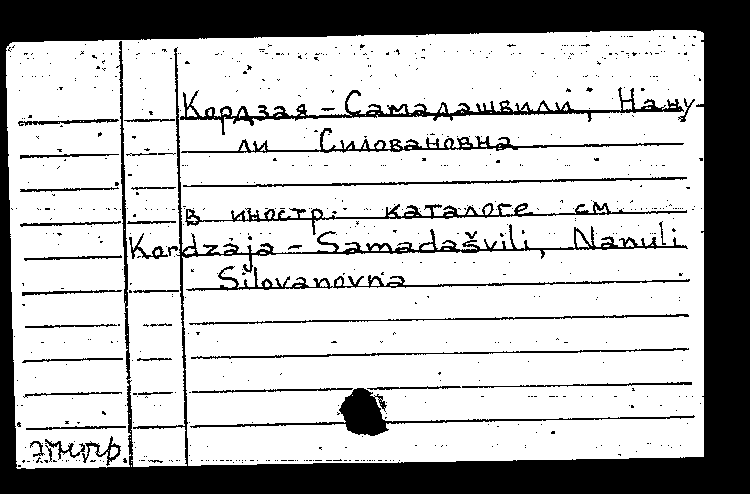 Кордзая-Самадашвили, Нану-
ли Силовановна
в иностр. каталоге см.
Kordzaja-Samadašvili, Nanuli
Silovanovna
этногр.